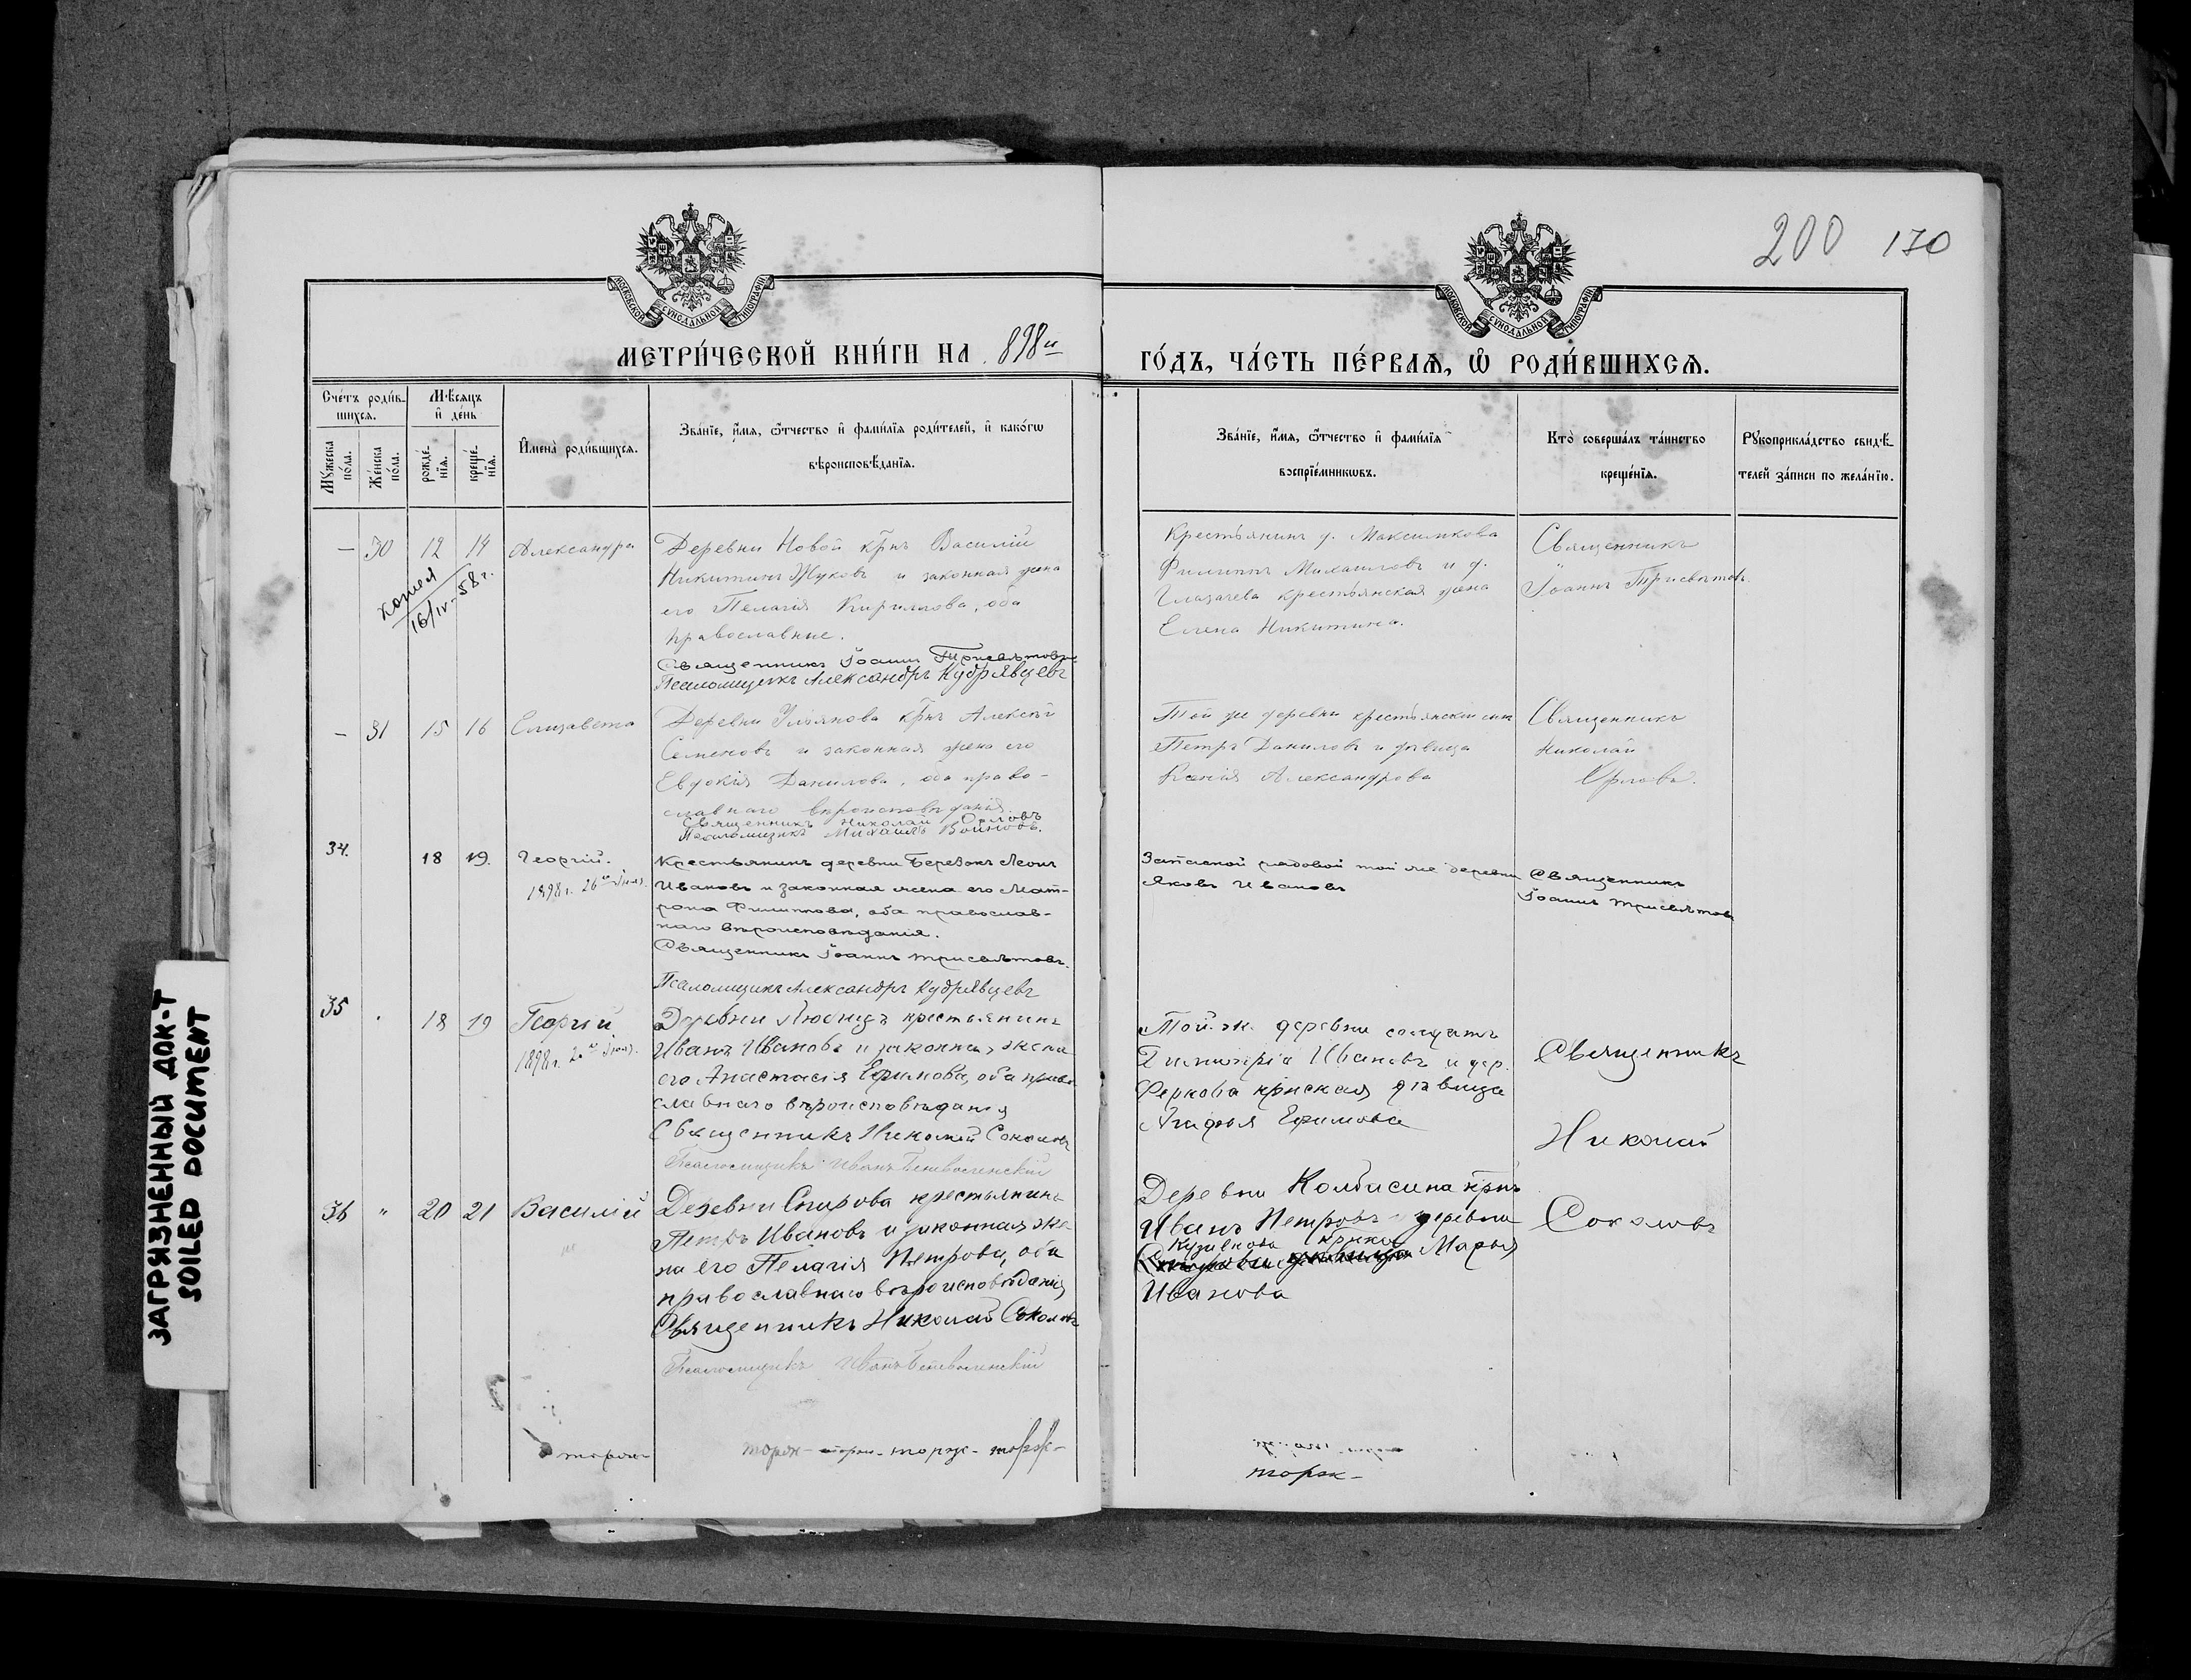 200 170
МОСКОВСКОЙ СѴНОДАЛЬНОЙ ТИПОГРАФІИ
МОСКОВСКОЙ СѴНОДАЛЬНОЙ ТИПОГРАФІИ
МЕТРИ́ЧЕСКОЙ КНИ́ГИ НА 898й
ГО́ДЪ, ЧА́СТЬ ПЕ́РВАѦ, Ѡ҆ РОДИ́ВШИХСѦ.
Сче́тъ роди́в-
шихся.
Мꙋжеска по́ла.
Же́нска по́ла.
Мѣ́сяцъ и҆ де́нь
рожде́-нїя.
креще́-нїя.
И҆мена̀ роди́вшихся.
Зва́нїе, и҆́мя, ѻ҆́тчество и҆ фами́лїя роди́телей, и҆ како́гѡ
вѣроисповѣ́данїя.
Зва́нїе, и҆́мя, ѻ҆́тчество и҆ фами́лїя
воспрїе́мникѡвъ.
Кто̀ соверша́лъ та́инство
креще́нїя.
Рꙋкоприкла́дство свидѣ́-
телей за́писи по жела́нїю.
— 30 12 14 Александра
копия
16/IV-58г.
Деревни Новой крнъ Василій
Никитинъ Жуковъ и законная жена
его Пелагія Кириллова, оба
православные.
Священникъ Іоаннъ Трисвятовъ
Псаломщикъ Александръ Кудрявцевъ
Крестьянинъ д. Максимкова
Филиппъ Михаиловъ и д.
Глазачева крестьянская жена
Елена Никитина.
Священникъ
Іоаннъ Трисвятовъ
— 31 15 16 Елизавета
Деревни Ульянова крнъ Алексѣй
Семеновъ и законная жена его
Евдокія Данилова, оба право-
славнаго вѣроисповѣданія.
Священникъ Николай Орловъ
Псаломщикъ Михаилъ Воиновъ.
Той же деревни крестьянскій сынъ
Петръ Даниловъ и дѣвица
Ксенія Александрова
Священникъ
Николай
Орловъ.
34. 18 19. Георгій.
1898г. 26го
Крестьянинъ деревни Березокъ Леонъ
Ивановъ и законная жена его Мат-
рона Филиппова, оба православ-
наго вѣроисповѣданія.
Священникъ Іоаннъ Трисвятовъ.
Псаломщикъ Александръ Кудрявцевъ
Запасной рядовой той же деревни
Яковъ Ивановъ
Священникъ
Іоаннъ Трисвятовъ
35 18 19 Георгій
1898г.
Деревни крестьянинъ
Иванъ Ивановъ и законная жена
его Анастасія Ефимова, оба право-
славнаго вѣроисповѣданія
Священникъ Николай Соколовъ
Псаломщикъ Иванъ Беневоленскій
Той-же деревни солдатъ
Димитрій Ивановъ и дер.
Феркова крнская дѣвица
Агафья Ефимова
Священникъ
Николай
Соколовъ
36 " 20 21 Василій
Деревни Спирова крестьянинъ
Петръ Ивановъ и законная же-
на его Пелагія Петрова, оба
православнаго вѣроисповѣданія
Священникъ Николай Соколовъ
Псаломщикъ Иванъ Беневоленскій
Деревни Колбасина крнъ
Иванъ Петровъ деревни
Марья
Иванова
торж- торж- торж-
торж-
ЗАГРЯЗНЕННЫЙ ДОК-Т
SOILED DOCUMENT